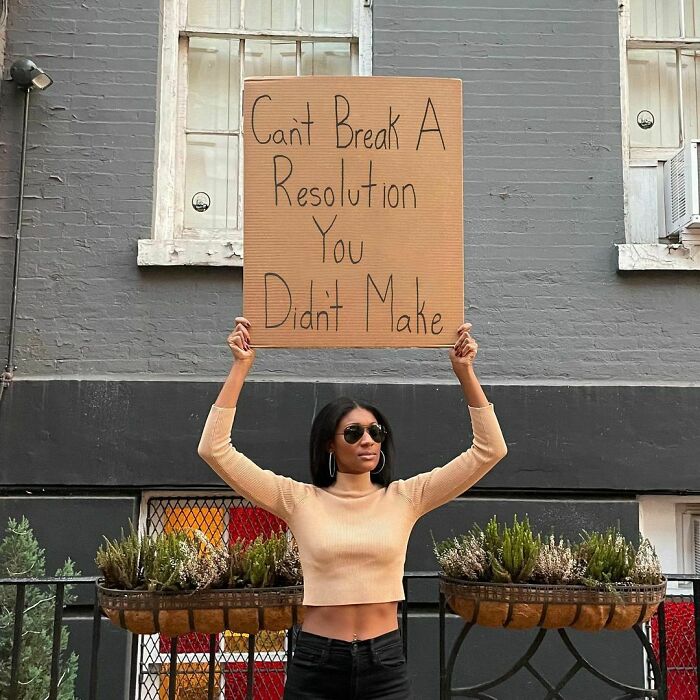 Can't Break A
Resolution
You
Didn't Make